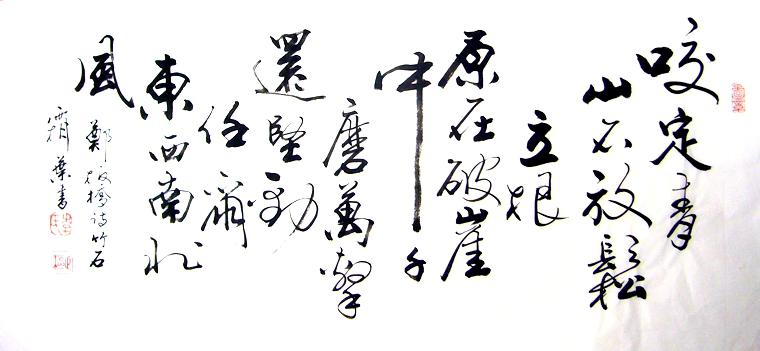 咬定青
山不放鬆
立根
原在破崖
中千
磨萬擊
還堅勁
任爾
東西南北
風
鄭板橋詩竹石
霜葉書